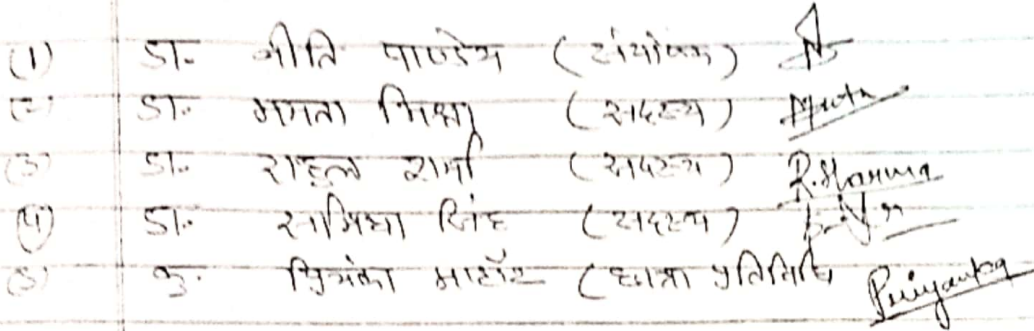 (1) डा. नीति पाण्डेय (संयोजक)
(2) डा. ममता मिश्रा (सदस्य)
(3) डा. राहुल शर्मा (सदस्य) R. Sharma
(4) डा. समिधा सिंह (सदस्य)
(5) कु. प्रियंका माठौर (छात्रा प्रतिनिधि Priyanka